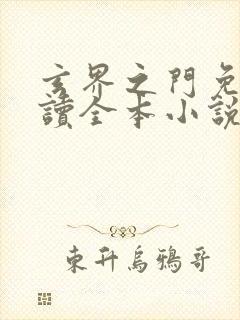 玄界之門免
讀全本小說
東升烏鴉哥